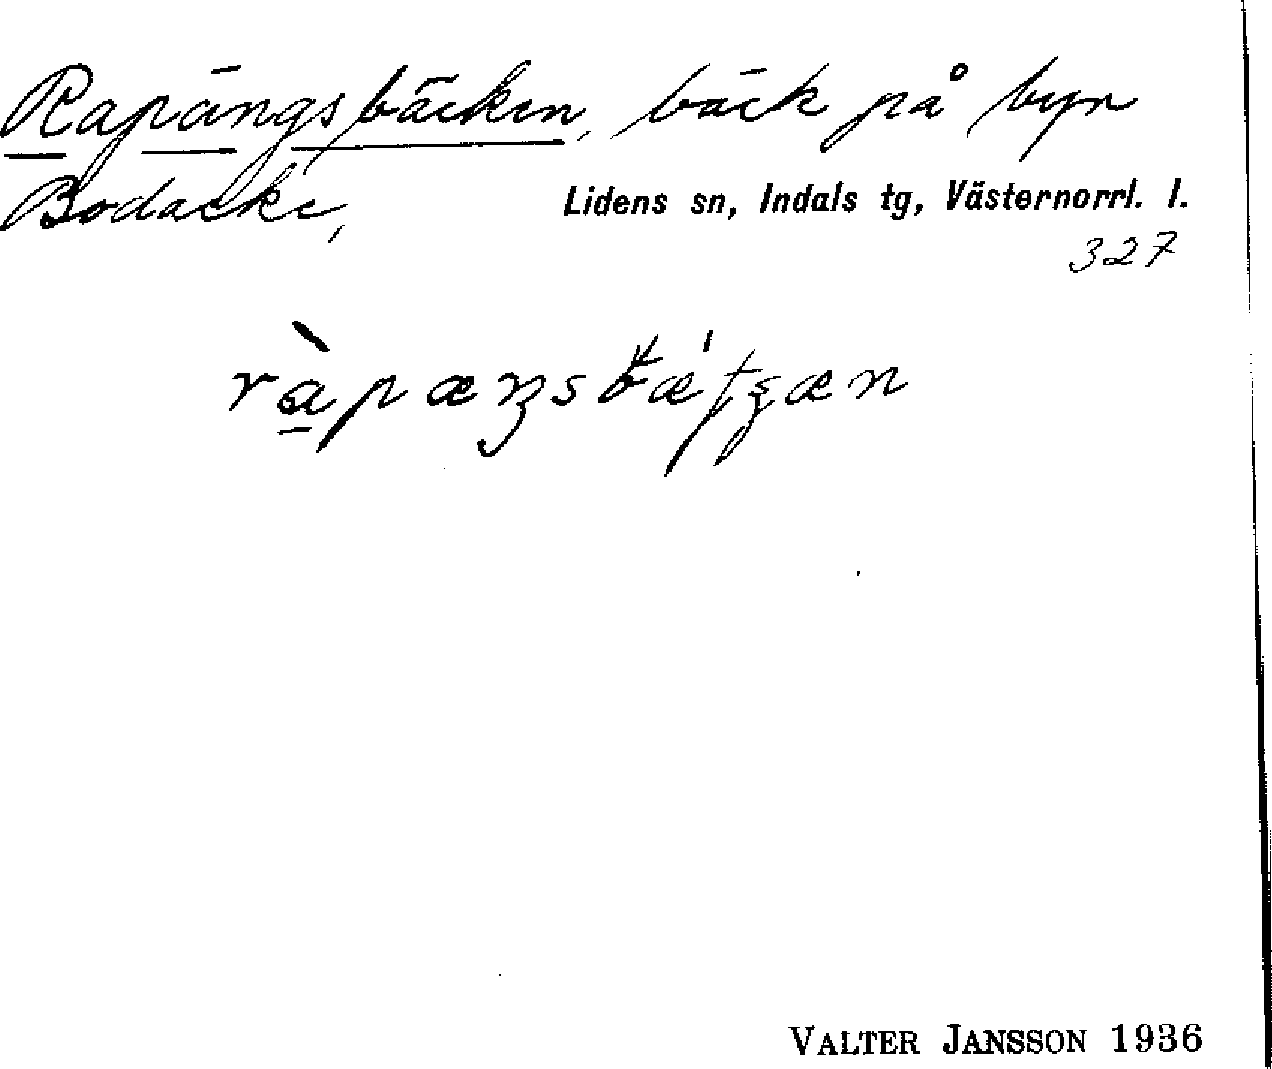 Rapängsbäcken, bäck på byn
Bodacke,
Lidens sn, Indals tg, Västernorrl. l.
327
VALTER JANSSON 1936